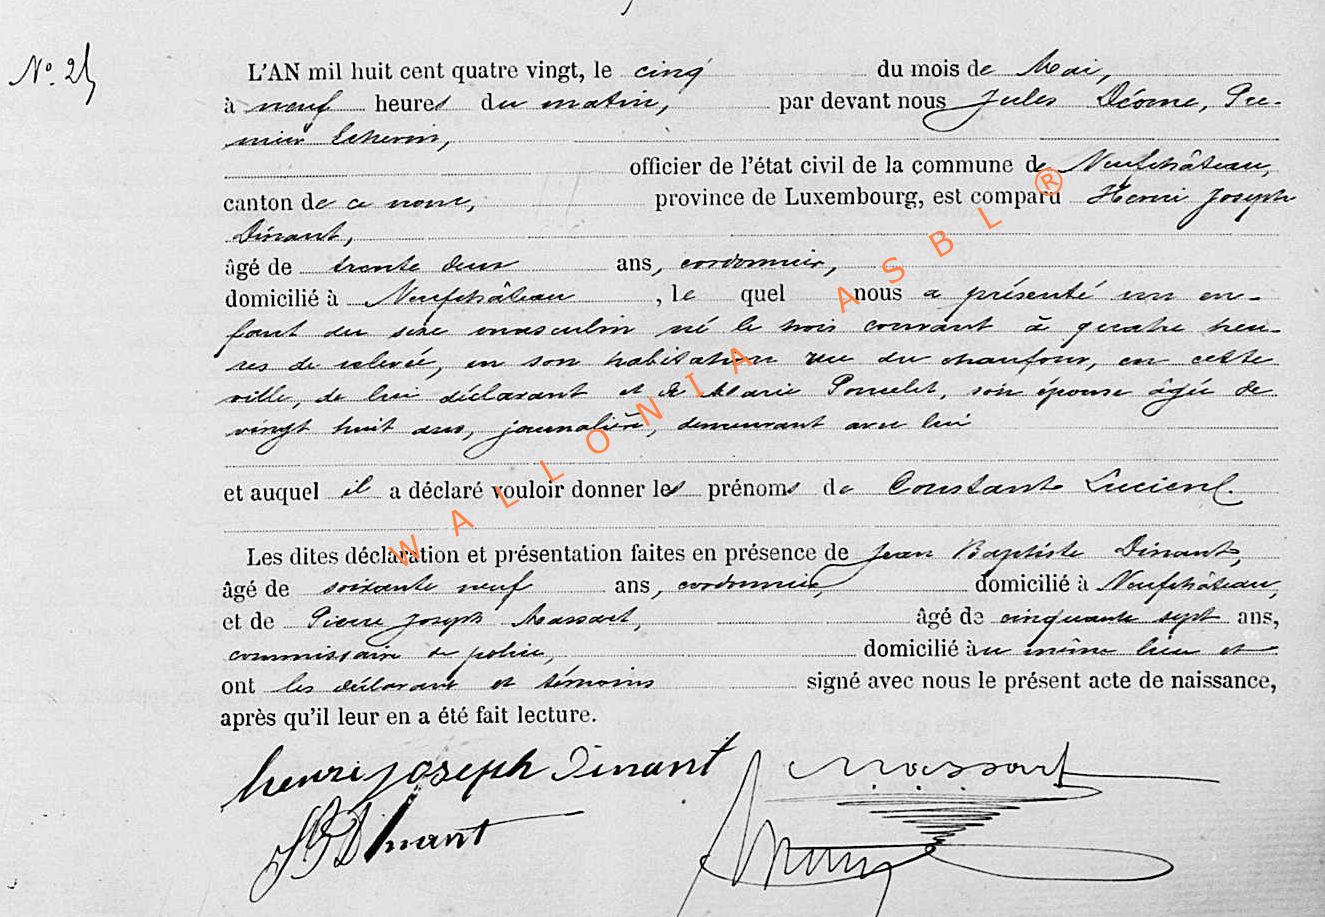 N° 25
L'AN mil huit cent quatre vingt, le cinq du mois de Mai,
à neuf heures du matin, par devant nous Jules Déome, Pre-
mier Echevin,
officier de l'état civil de la commune de Neufchâteau,
canton de ce nom, province de Luxembourg, est comparu Henri Joseph
Dinant,
âgé de trente deux ans, cordonnier,
domicilié à Neufchâteau, le quel nous a présenté un en-
fant du sexe masculin né le trois courant à quatre heu-
res de relevée, en son habitation rue du chaufour, en cette
ville, de lui déclarant et de Marie Poncelet, son épouse âgée de
vingt huit ans, journalière, demeurant avec lui
et auquel il a déclaré vouloir donner les prénoms de Constant Lucien.
Les dites déclaration et présentation faites en présence de Jean Baptiste Dinant,
âgé de soixante neuf ans, cordonnier, domicilié à Neufchâteau,
et de Pierre Joseph Massart, âgé de cinquante sept ans,
commissaire de police, domicilié au même lieu et
ont les déclarant et témoins signé avec nous le présent acte de naissance,
après qu'il leur en a été fait lecture.
henri joseph Dinant Massart
JB Dinant
WALLONIA ASBL ®